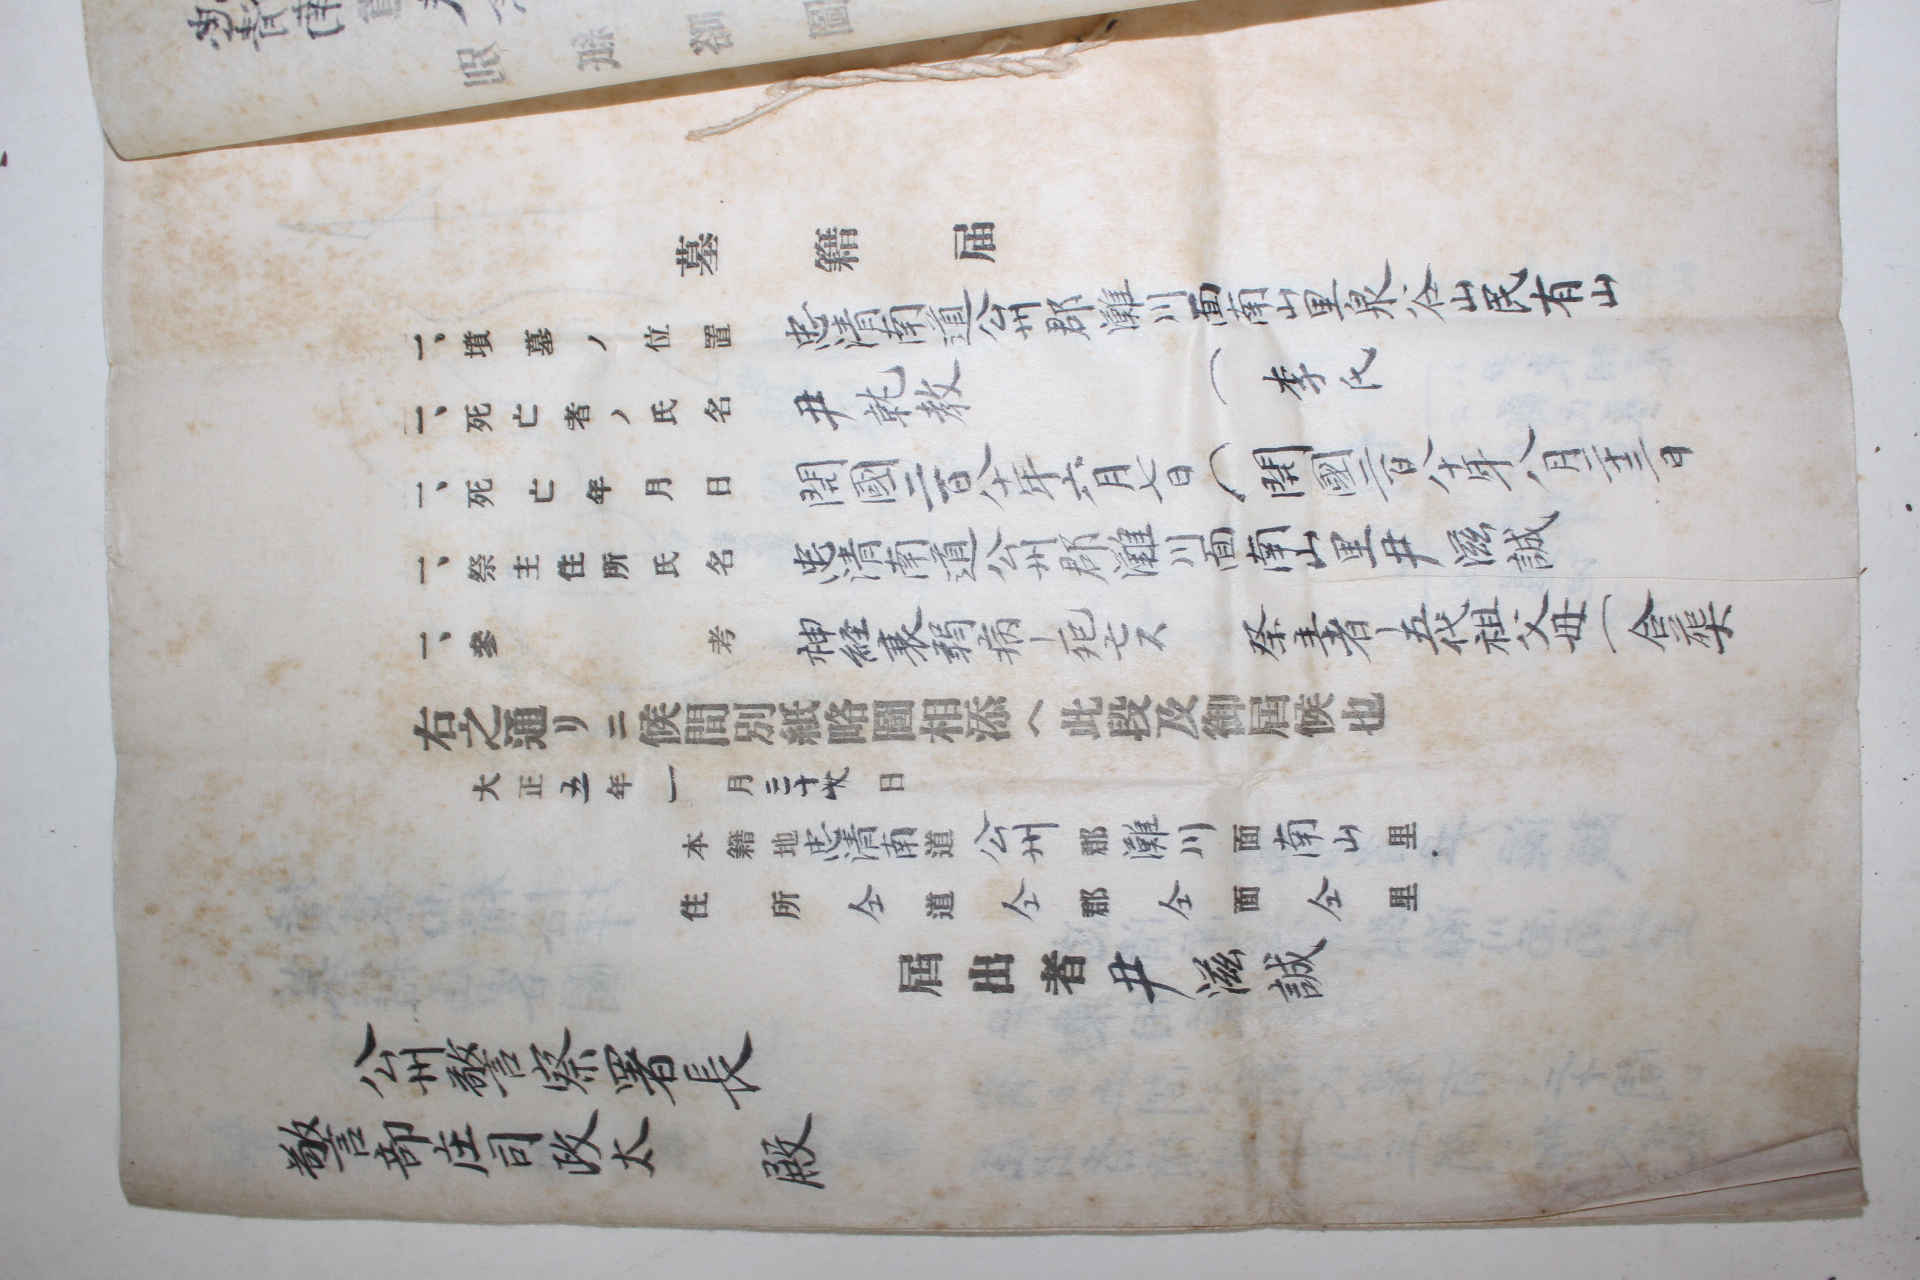 墓籍届
一、墳墓ノ位置 忠清南道公州郡灘川面南山里泉谷山民有山
一、死亡者ノ氏名 尹乾教 (李氏
一、死亡年月日 開國二百八十年六月七日 (開國二百八十年八月二十三日
一、祭主住所氏名 忠清南道公州郡灘川面南山里尹滋誠
一、参考 神經衰弱病ニ死亡セス 祭主者ノ五代祖父母(合葬
右之通リニ候間別紙略圖相添ヘ此段及御届候也
大正五年一月三十 日
本籍地忠清南道公州郡灘川面南山里
住所仝道仝郡仝面仝里
届出者尹滋誠
公州警察署長
警部庄司政太 殿